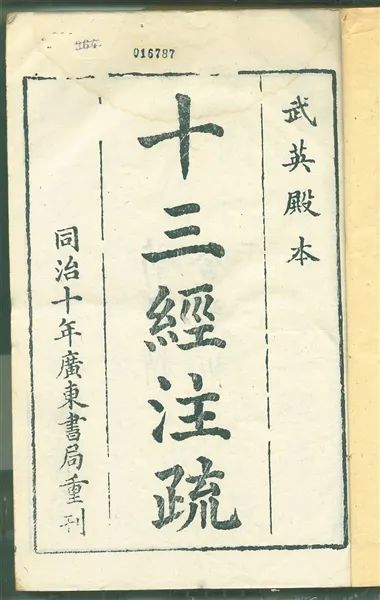 016787
武英殿本
十三經注疏
同治十年廣東書局重刊